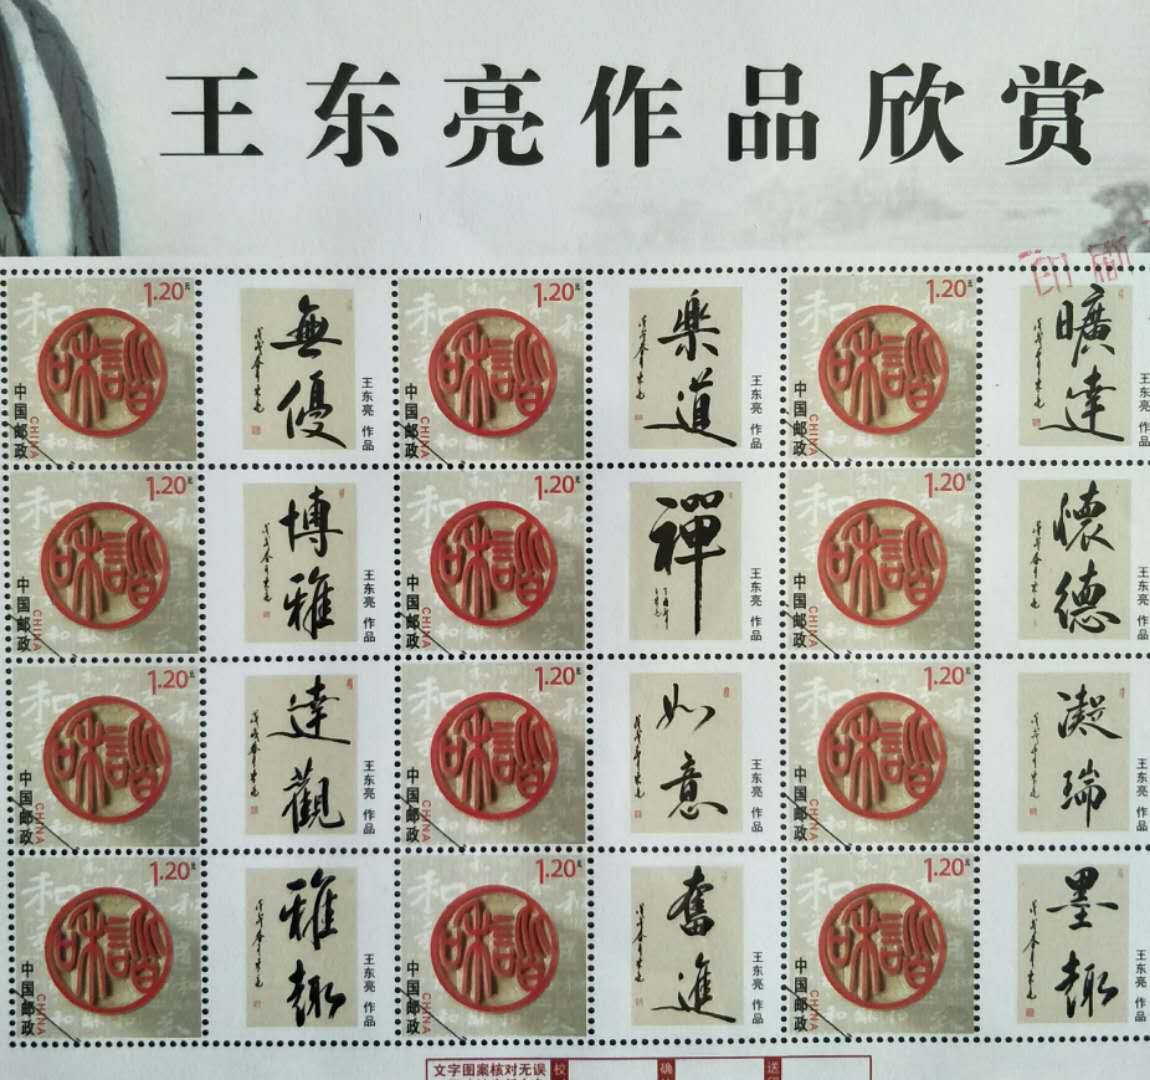 王东亮作品欣赏
1.20元
中国邮政
CHINA
和諧
無優
王东亮 作品
1.20元
中国邮政
CHINA
和諧
樂道
王东亮 作品
1.20元
中国邮政
CHINA
和諧
曠達
王东亮
1.20元
中国邮政
CHINA
和諧
博雅
王东亮 作品
1.20元
中国邮政
CHINA
和諧
禪
王东亮 作品
1.20元
中国邮政
CHINA
和諧
懷德
王东亮 作品
1.20元
中国邮政
CHINA
和諧
達觀
王东亮 作品
1.20元
中国邮政
CHINA
和諧
如意
王东亮 作品
1.20元
中国邮政
CHINA
和諧
凝瑞
王东亮 作品
1.20元
中国邮政
CHINA
和諧
雅趣
王东亮 作品
1.20元
中国邮政
CHINA
和諧
奮進
王东亮 作品
1.20元
中国邮政
CHINA
和諧
墨趣
王东亮 作品
文字图案核对无误
校
确
送